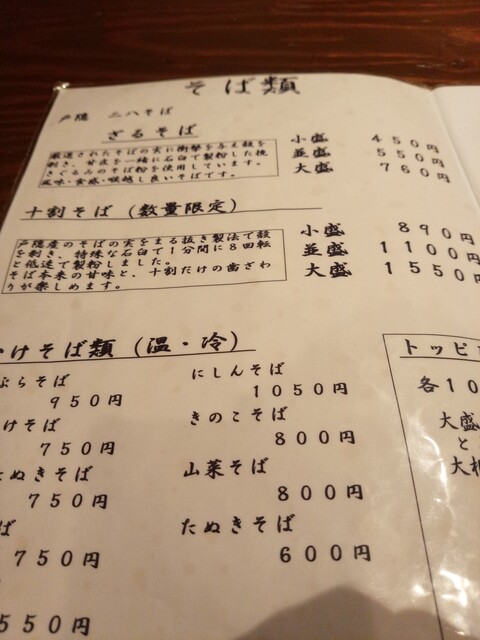 そば類
戸隠 二八そば
ざるそば
厳選されたそばの実に衝撃を与え殻を
剥き、甘皮を一緒に石臼で製粉した挽
きぐるみのそば粉を使用しています。
風味・食感・喉越し良いそばです。
小盛 450円
並盛 550円
大盛 760円
十割そば（数量限定）
戸隠産のそばの実をまる抜き製法で殻
を剥き、特殊な石臼で1分間に8回転
と低速で製粉しました。
そば本来の甘味と、十割だけの歯ざわ
りが楽しめます。
小盛 890円
並盛 1100円
大盛 1550円
けそば類（温・冷）
ぷらそば
950円
けそば
750円
ぬきそば
750円
ば
750円
550円
にしんそば
1050円
きのこそば
800円
山菜そば
800円
たぬきそば
600円
トッピ
各10
大盛
と
大